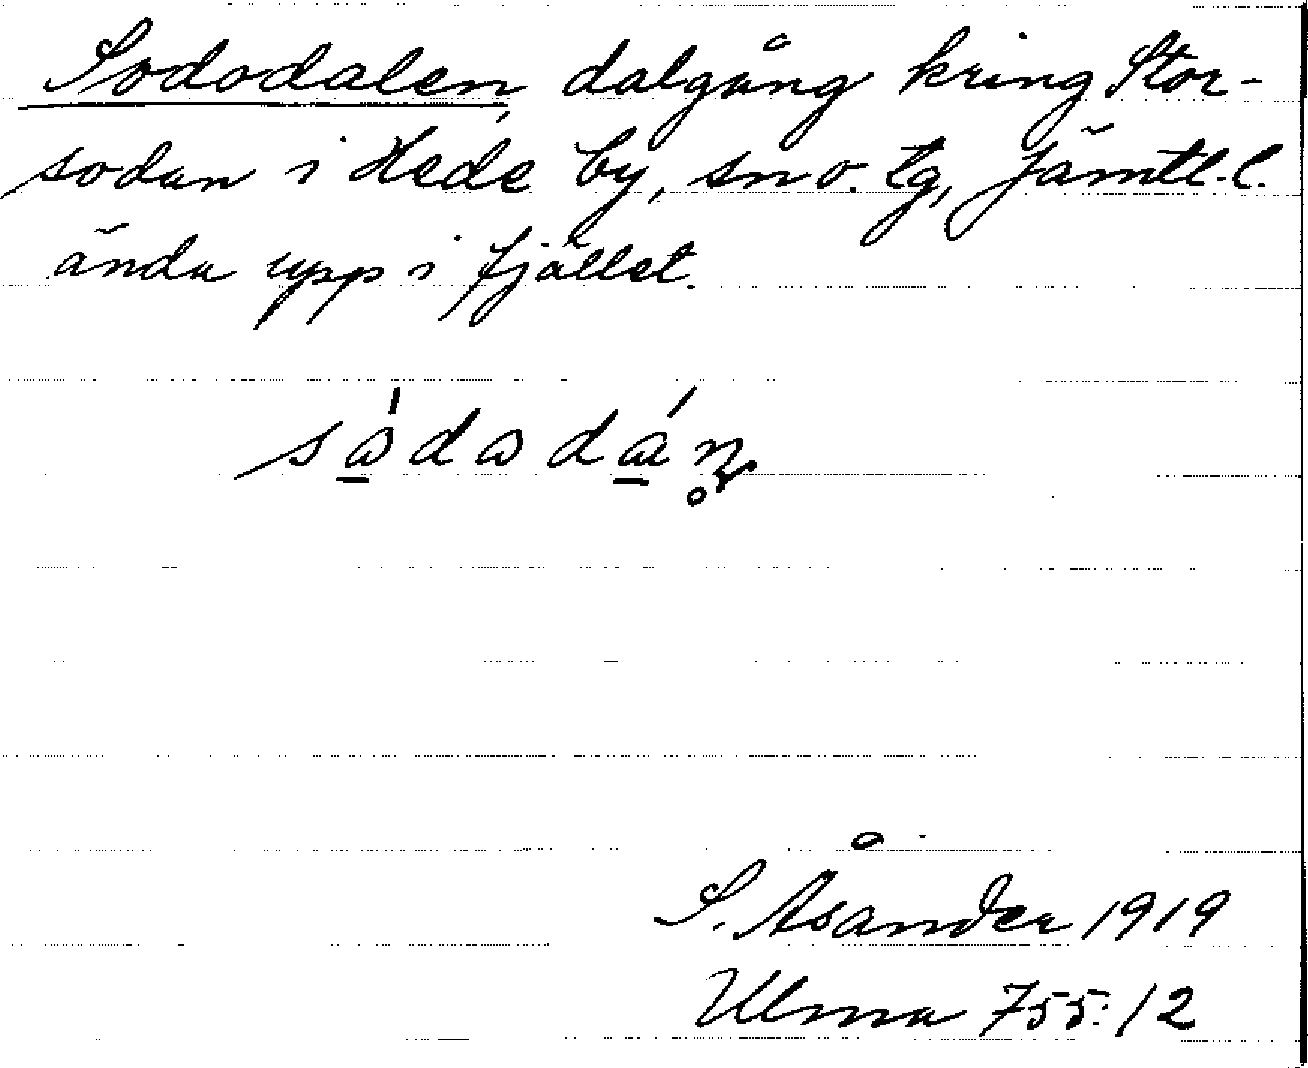 Sododalen, dalgång kring Stor-
sodan i Hede by, sn o. tg, Jämtl. l.
ända upp i fjället.
S. Åsander 1919
Ulma 755:12